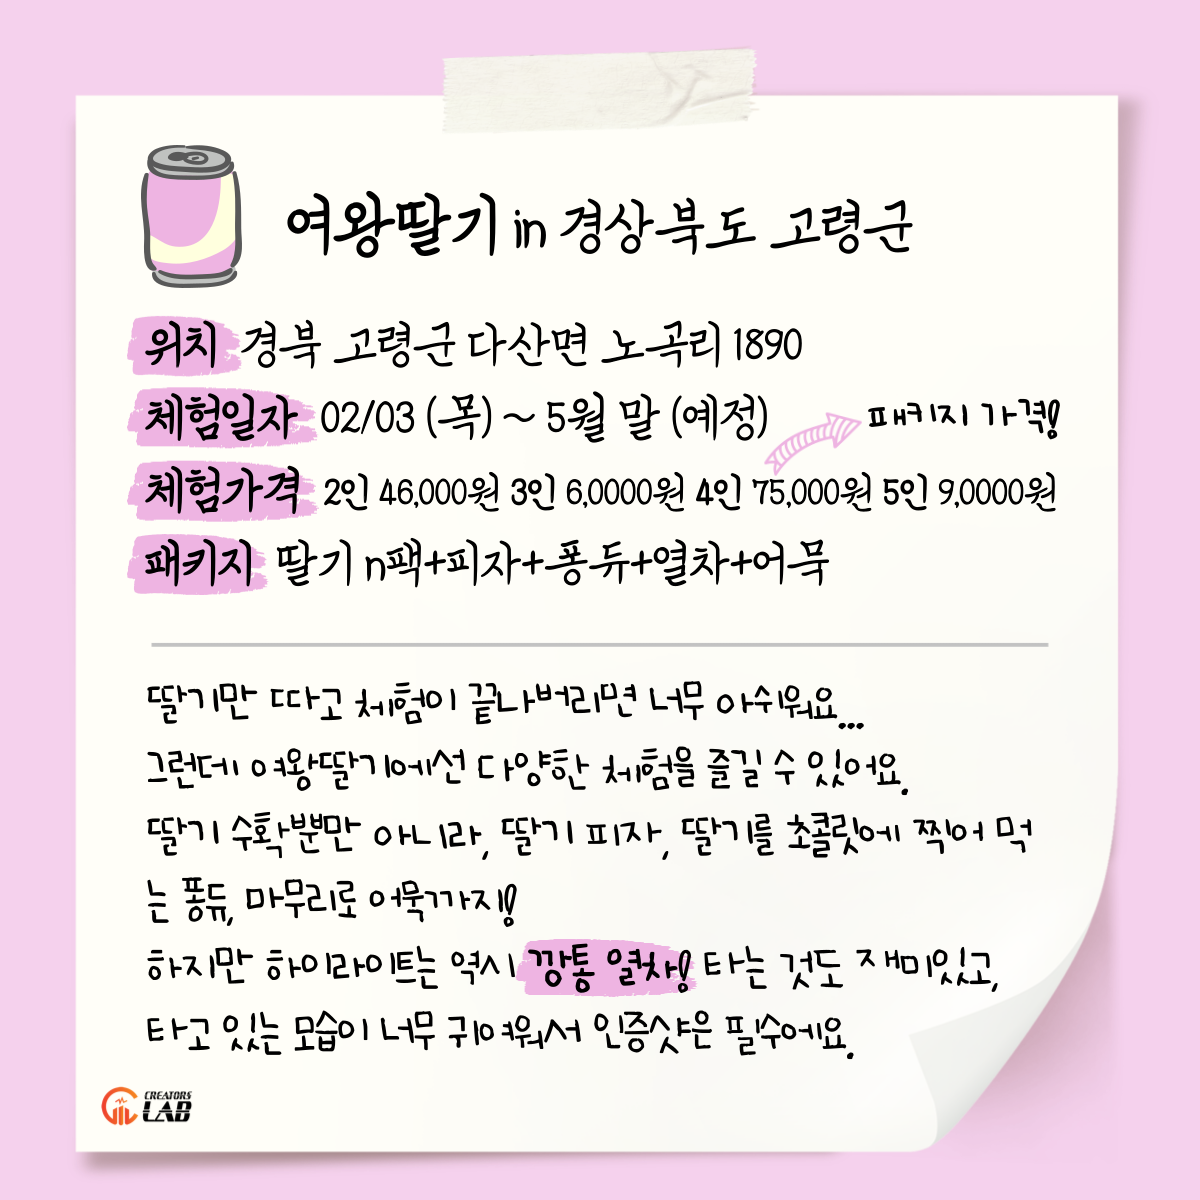 여왕딸기 in 경상북도 고령군
위치 경북 고령군 다산면 노곡리 1890
체험일자 02/03 (목) ~ 5월 말 (예정)
패키지 가격!
체험가격 2인 46,000원 3인 6,0000원 4인 75,000원 5인 9,0000원
패키지 딸기 n팩+피자+퐁듀+열차+어묵
딸기만 따고 체험이 끝나버리면 너무 아쉬워요...
그런데 여왕딸기에선 다양한 체험을 즐길 수 있어요.
딸기 수확뿐만 아니라, 딸기 피자, 딸기를 초콜릿에 찍어 먹
는 퐁듀, 마무리로 어묵까지!
하지만 하이라이트는 역시 깡통 열차! 타는 것도 재미있고,
타고 있는 모습이 너무 귀여워서 인증샷은 필수에요.
CREATORS
LAB